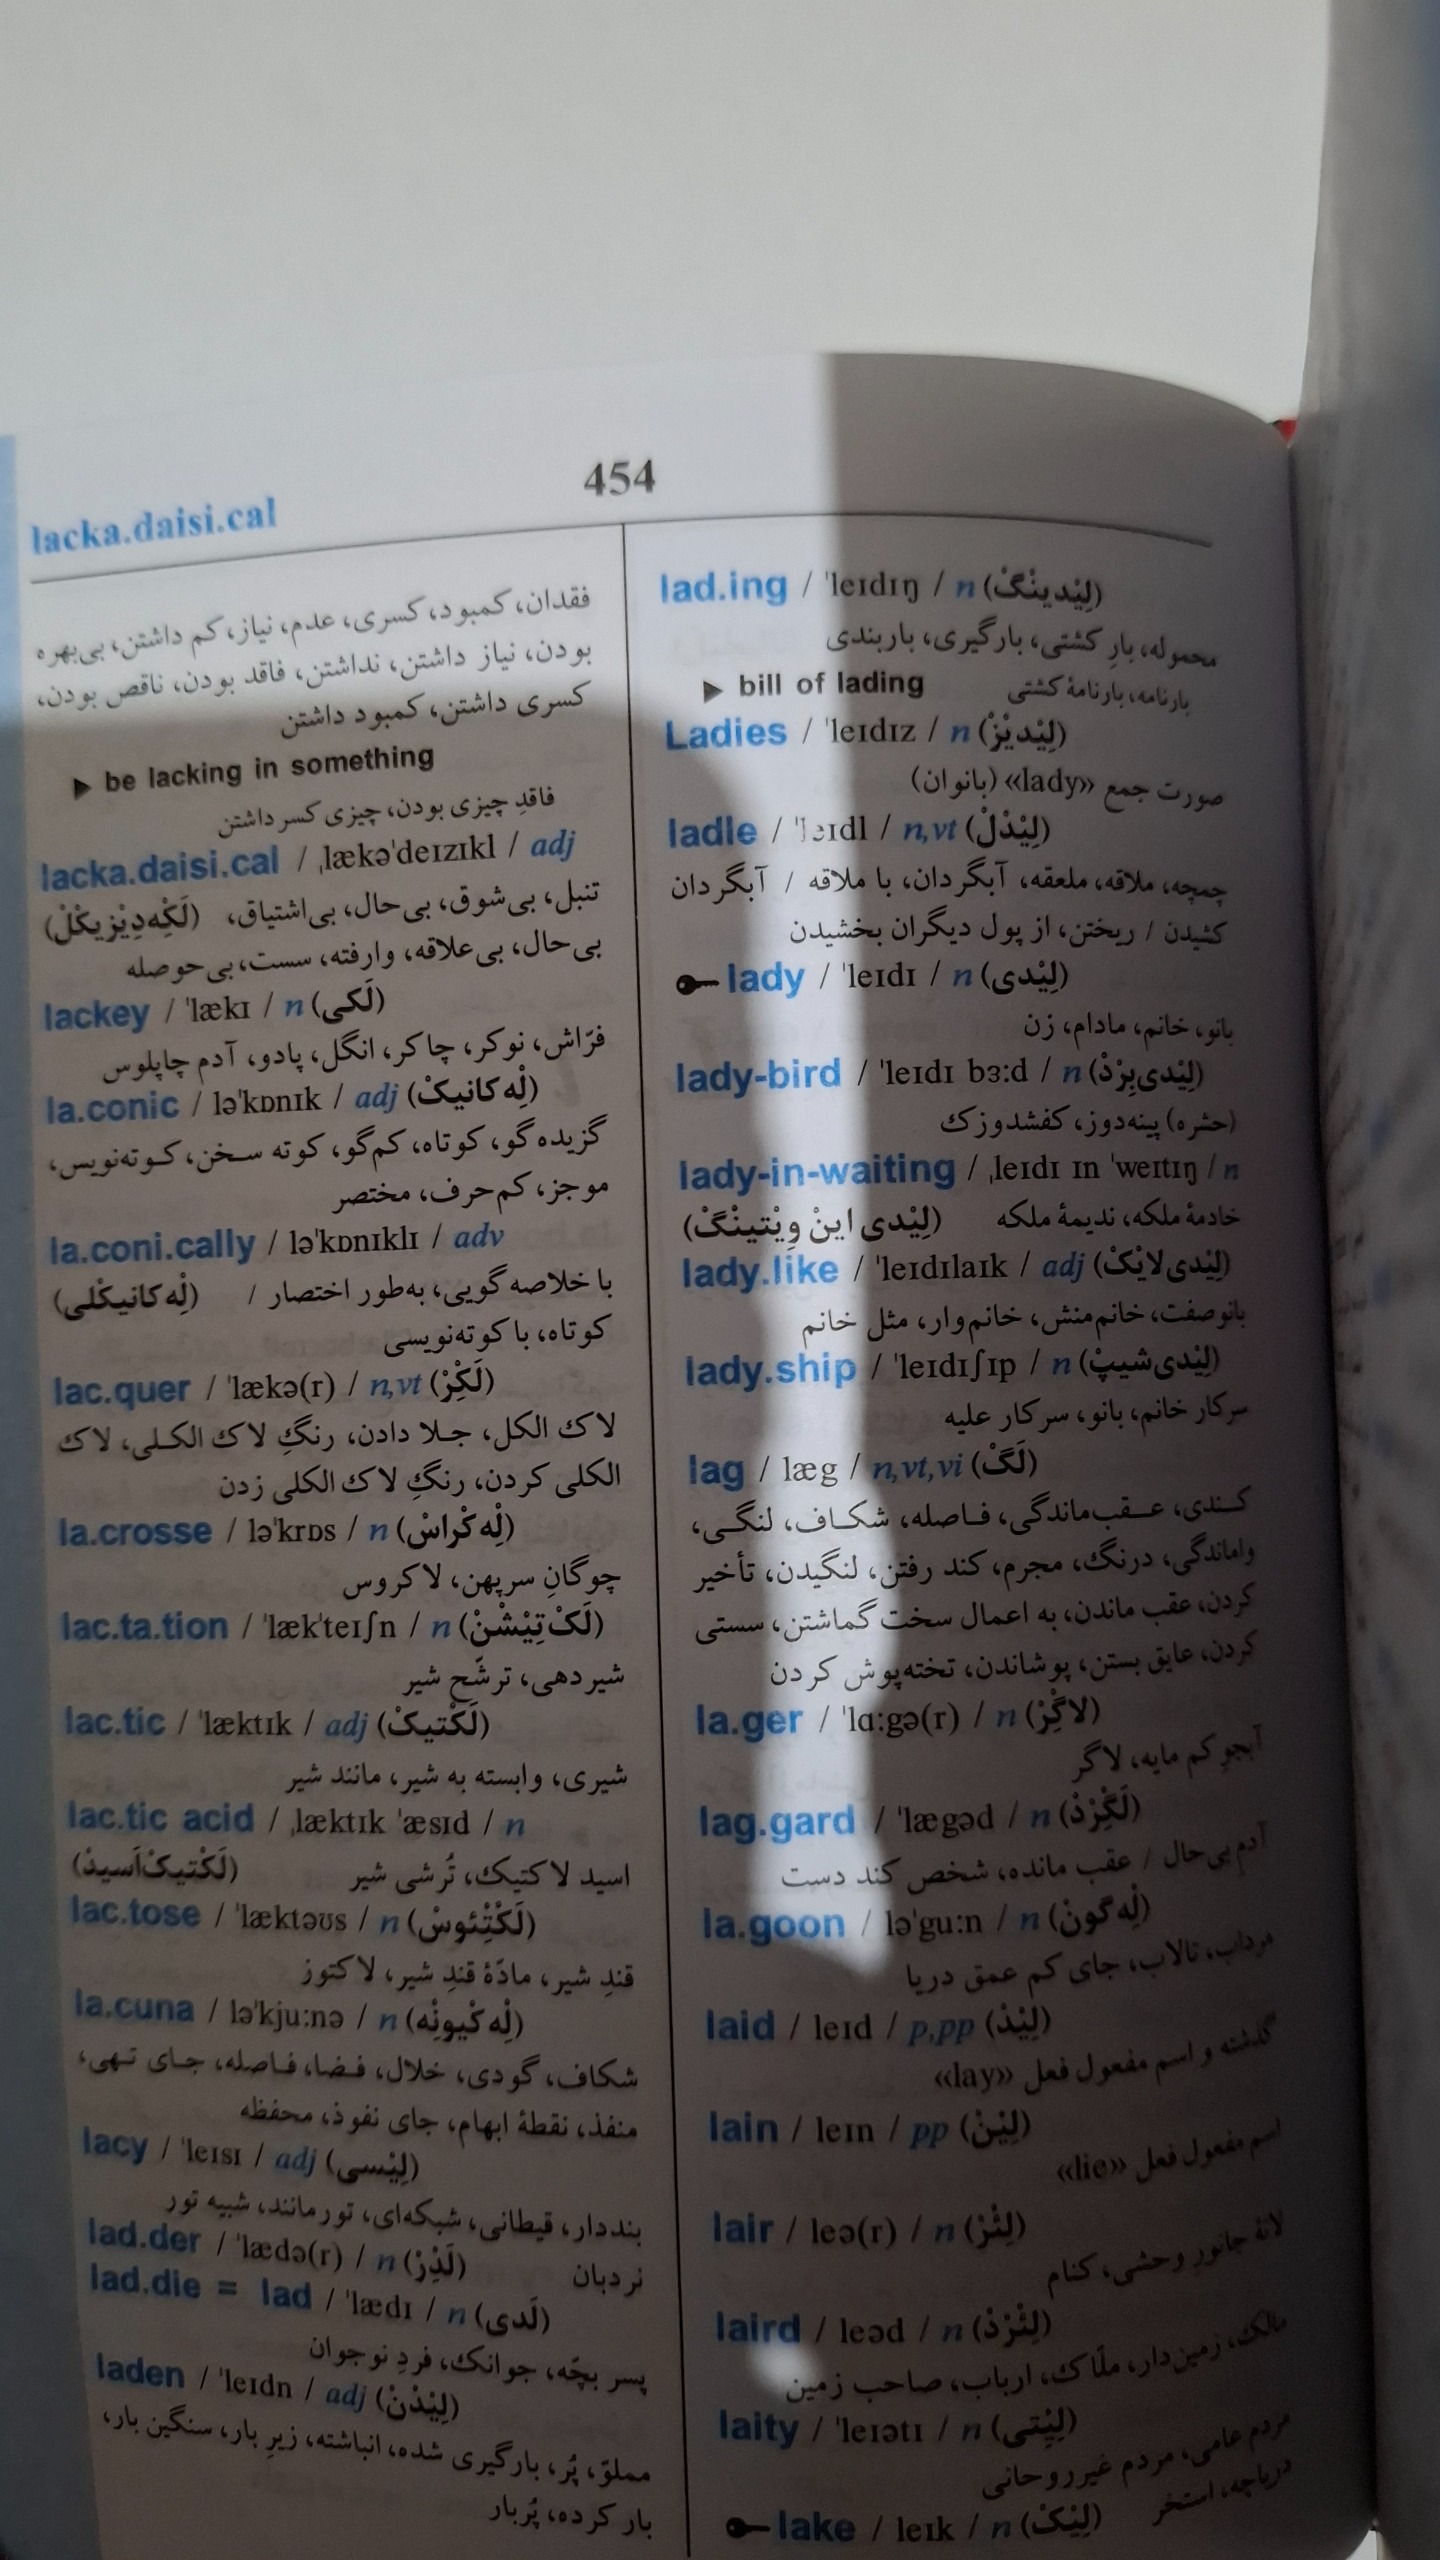 454
lacka.daisi.cal
فقدان، کمبود، کسری، عدم، نیاز، کم داشتن، بی‌بهره
بودن، نیاز داشتن، نداشتن، فاقد بودن، ناقص بودن،
کسری داشتن، کمبود داشتن
▶ be lacking in something
فاقدِ چیزی بودن، چیزی کسر داشتن
lacka.daisi.cal / ˌlækəˈdeɪzɪkl / adj
(لَکِه‌دِیْزیکْلْ) تنبل، بی‌شوق، بی‌حال، بی‌اشتیاق،
بی‌حال، بی‌علاقه، وارفته، سست، بی‌حوصله
lackey / ˈlækɪ / n (لَکی)
فرّاش، نوکر، چاکر، انگل، پادو، آدم چاپلوس
la.conic / ləˈkɒnɪk / adj (لِه‌کانیکْ)
گزیده‌گو، کوتاه، کم‌گو، کوته سخن، کوته‌نویس،
موجز، کم‌حرف، مختصر
la.coni.cally / ləˈkɒnɪklɪ / adv
(لِه‌کانیکْلی) با خلاصه‌گویی، به‌طور اختصار /
کوتاه، با کوته‌نویسی
lac.quer / ˈlækə(r) / n,vt (لَکِرْ)
لاک الکل، جلا دادن، رنگِ لاک الکلی، لاک
الکلی کردن، رنگِ لاک الکلی زدن
la.crosse / ləˈkrɒs / n (لِه‌کْراسْ)
چوگانِ سرپهن، لاکروس
lac.ta.tion / ˈlækˈteɪʃn / n (لَکْ‌تِیْشْنْ)
شیردهی، ترشّح شیر
lac.tic / ˈlæktɪk / adj (لَکْتیکْ)
شیری، وابسته به شیر، مانند شیر
lac.tic acid / ˌlæktɪk ˈæsɪd / n
(لَکْتیکْ‌اَسیدْ) اسید لاکتیک، تُرشی شیر
lac.tose / ˈlæktəʊs / n (لَکْتِئوسْ)
قندِ شیر، مادّهٔ قندِ شیر، لاکتوز
la.cuna / ləˈkju:nə / n (لِه‌کْیونِه)
شکاف، گودی، خلال، فضا، فاصله، جای تهی،
منفذ، نقطهٔ ابهام، جای نفوذ، محفظه
lacy / ˈleɪsɪ / adj (لِیْسی)
بنددار، قیطانی، شبکه‌ای، تورمانند، شبیه تور
lad.der / ˈlædə(r) / n (لَدِرْ) نردبان
lad.die = lad / ˈlædɪ / n (لَدی)
پسر بچّه، جوانک، فردِ نوجوان
laden / ˈleɪdn / adj (لِیْدْنْ)
مملوّ، پُر، بارگیری شده، انباشته، زیرِ بار، سنگین بار،
بار کرده، پُربار
lad.ing / ˈleɪdɪŋ / n (لِیْدینْگْ)
محموله، بارِ کشتی، بارگیری، باربندی
▶ bill of lading بارنامه، بارنامهٔ کشتی
Ladies / ˈleɪdɪz / n (لِیْدیْزْ)
صورت جمع «lady» (بانوان)
ladle / ˈleɪdl / n,vt (لِیْدْلْ)
چمچه، ملاقه، ملعقه، آبگردان، با ملاقه / آبگردان
کشیدن / ریختن، از پول دیگران بخشیدن
lady / ˈleɪdɪ / n (لِیْدی)
بانو، خانم، مادام، زن
lady-bird / ˈleɪdɪ bɜ:d / n (لِیْدی‌بِرْدْ)
(حشره) پینه‌دوز، کفشدوزک
lady-in-waiting / ˌleɪdɪ ɪn ˈweɪtɪŋ / n
(لِیْدی اینْ وِیْتینْگْ) خادمهٔ ملکه، ندیمهٔ ملکه
lady.like / ˈleɪdɪlaɪk / adj (لِیْدی‌لایْکْ)
بانوصفت، خانم‌منش، خانم‌وار، مثل خانم
lady.ship / ˈleɪdɪʃɪp / n (لِیْدی‌شیپْ)
سرکار خانم، بانو، سرکار علیه
lag / læg / n,vt,vi (لَگْ)
کندی، عقب‌ماندگی، فاصله، شکاف، لنگی،
واماندگی، درنگ، مجرم، کند رفتن، لنگیدن، تأخیر
کردن، عقب ماندن، به اعمال سخت گماشتن، سستی
کردن، عایق بستن، پوشاندن، تخته‌پوش کردن
la.ger / ˈlɑ:gə(r) / n (لاگِرْ)
آبجو کم مایه، لاگر
lag.gard / ˈlægəd / n (لَگِرْدْ)
آدم بی‌حال / عقب مانده، شخص کند دست
la.goon / ləˈgu:n / n (لِه‌گونْ)
مرداب، تالاب، جای کم عمق دریا
laid / leɪd / p,pp (لِیْدْ)
گذشته و اسم مفعول فعل «lay»
lain / leɪn / pp (لِیْنْ)
اسم مفعول فعل «lie»
lair / leə(r) / n (لِئْرْ)
لانهٔ جانورِ وحشی، کنام
laird / leəd / n (لِئْرْدْ)
مالک، زمین‌دار، ملّاک، ارباب، صاحب زمین
laity / ˈleɪətɪ / n (لِیِتی)
مردم عامی، مردم غیرروحانی
lake / leɪk / n (لِیْکْ) دریاچه، استخر